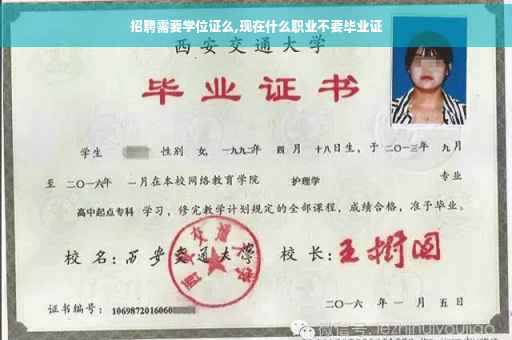 招聘需要学位证么,现在什么职业不要毕业证
西安交通大学
毕业证书
学生 性别 女, 一九九二年 四月 十八日生, 于 二〇一三年 九月
至 二〇一六年 一月在本校网络教育学院 护理学 专业
高中起点专科 学习, 修完教学计划规定的全部课程, 成绩合格, 准予毕业。
校名: 西安交通大学 校长: 王树国
西安交通大学
证书编号: 1069872016060
二〇一六年 一月 五日
微信号: jezhinuiyoujiao